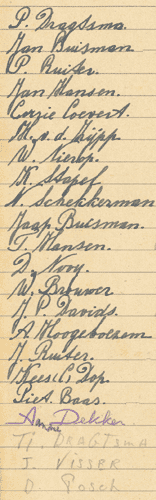 P. Dragtsma.
Jan Buisman
P. Ruiter.
Jan Hansen.
Corzie Coevert.
M. v. d. Lijpp
W. Nierop.
K. Stapel
N. Schekkerman
Jaap Buisman.
T. Hansen.
D. Nooy.
W. Brouwer
J. P. Davids.
A Hoogeboezem
J. Ruiter.
Kees (C) Dop
Piet Baas.
Dekker
Tj. DRAGTSMA
J. VISSER
D. Posch